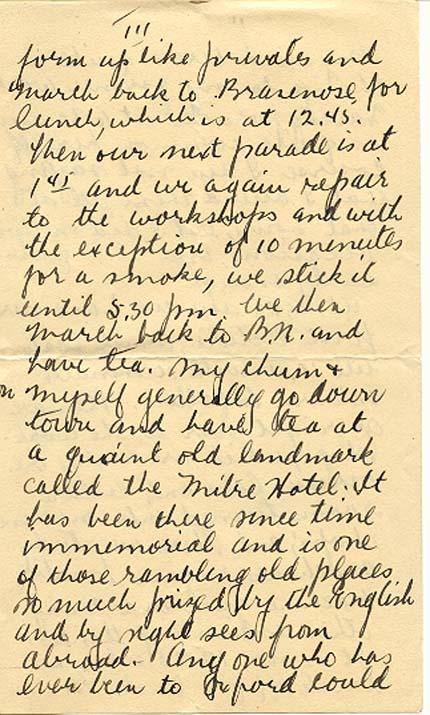 III
form up like privates and
march back to Brasenose, for
lunch, which is at 12.45.
Then our next parade is at
1 45 and we again repair
to the workshops and with
the exception of 10 minutes
for a smoke, we stick it
until 5.30 pm. We then
march back to B.N. and
have tea. My chum &
myself generally go down
town and have tea at
a quaint old landmark
called the Mitre Hotel. It
has been there since time
immemorial and is one
of those rambling old places
so much prized by the English
and by sight seers from
abroad. Any one who has
ever been to Oxford could